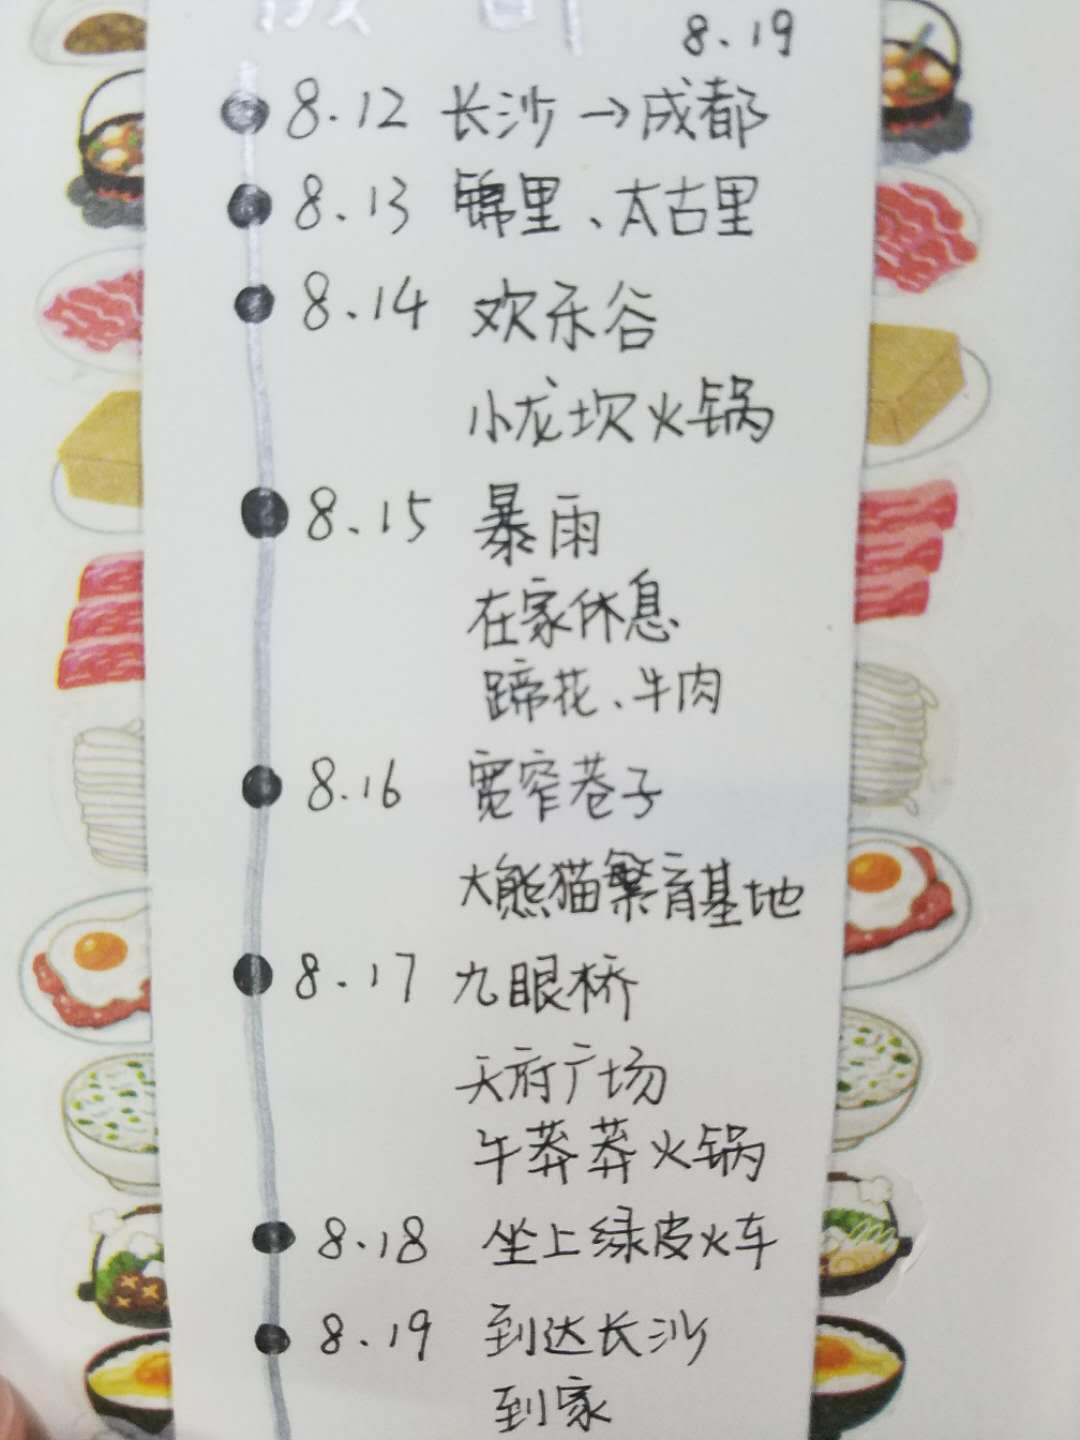 8.19
8.12 长沙→成都
8.13 锦里、太古里
8.14 欢乐谷
小龙坎火锅
8.15 暴雨
在家休息
蹄花、牛肉
8.16 宽窄巷子
大熊猫繁育基地
8.17 九眼桥
天府广场
午莽莽火锅
8.18 坐上绿皮火车
8.19 到达长沙
到家